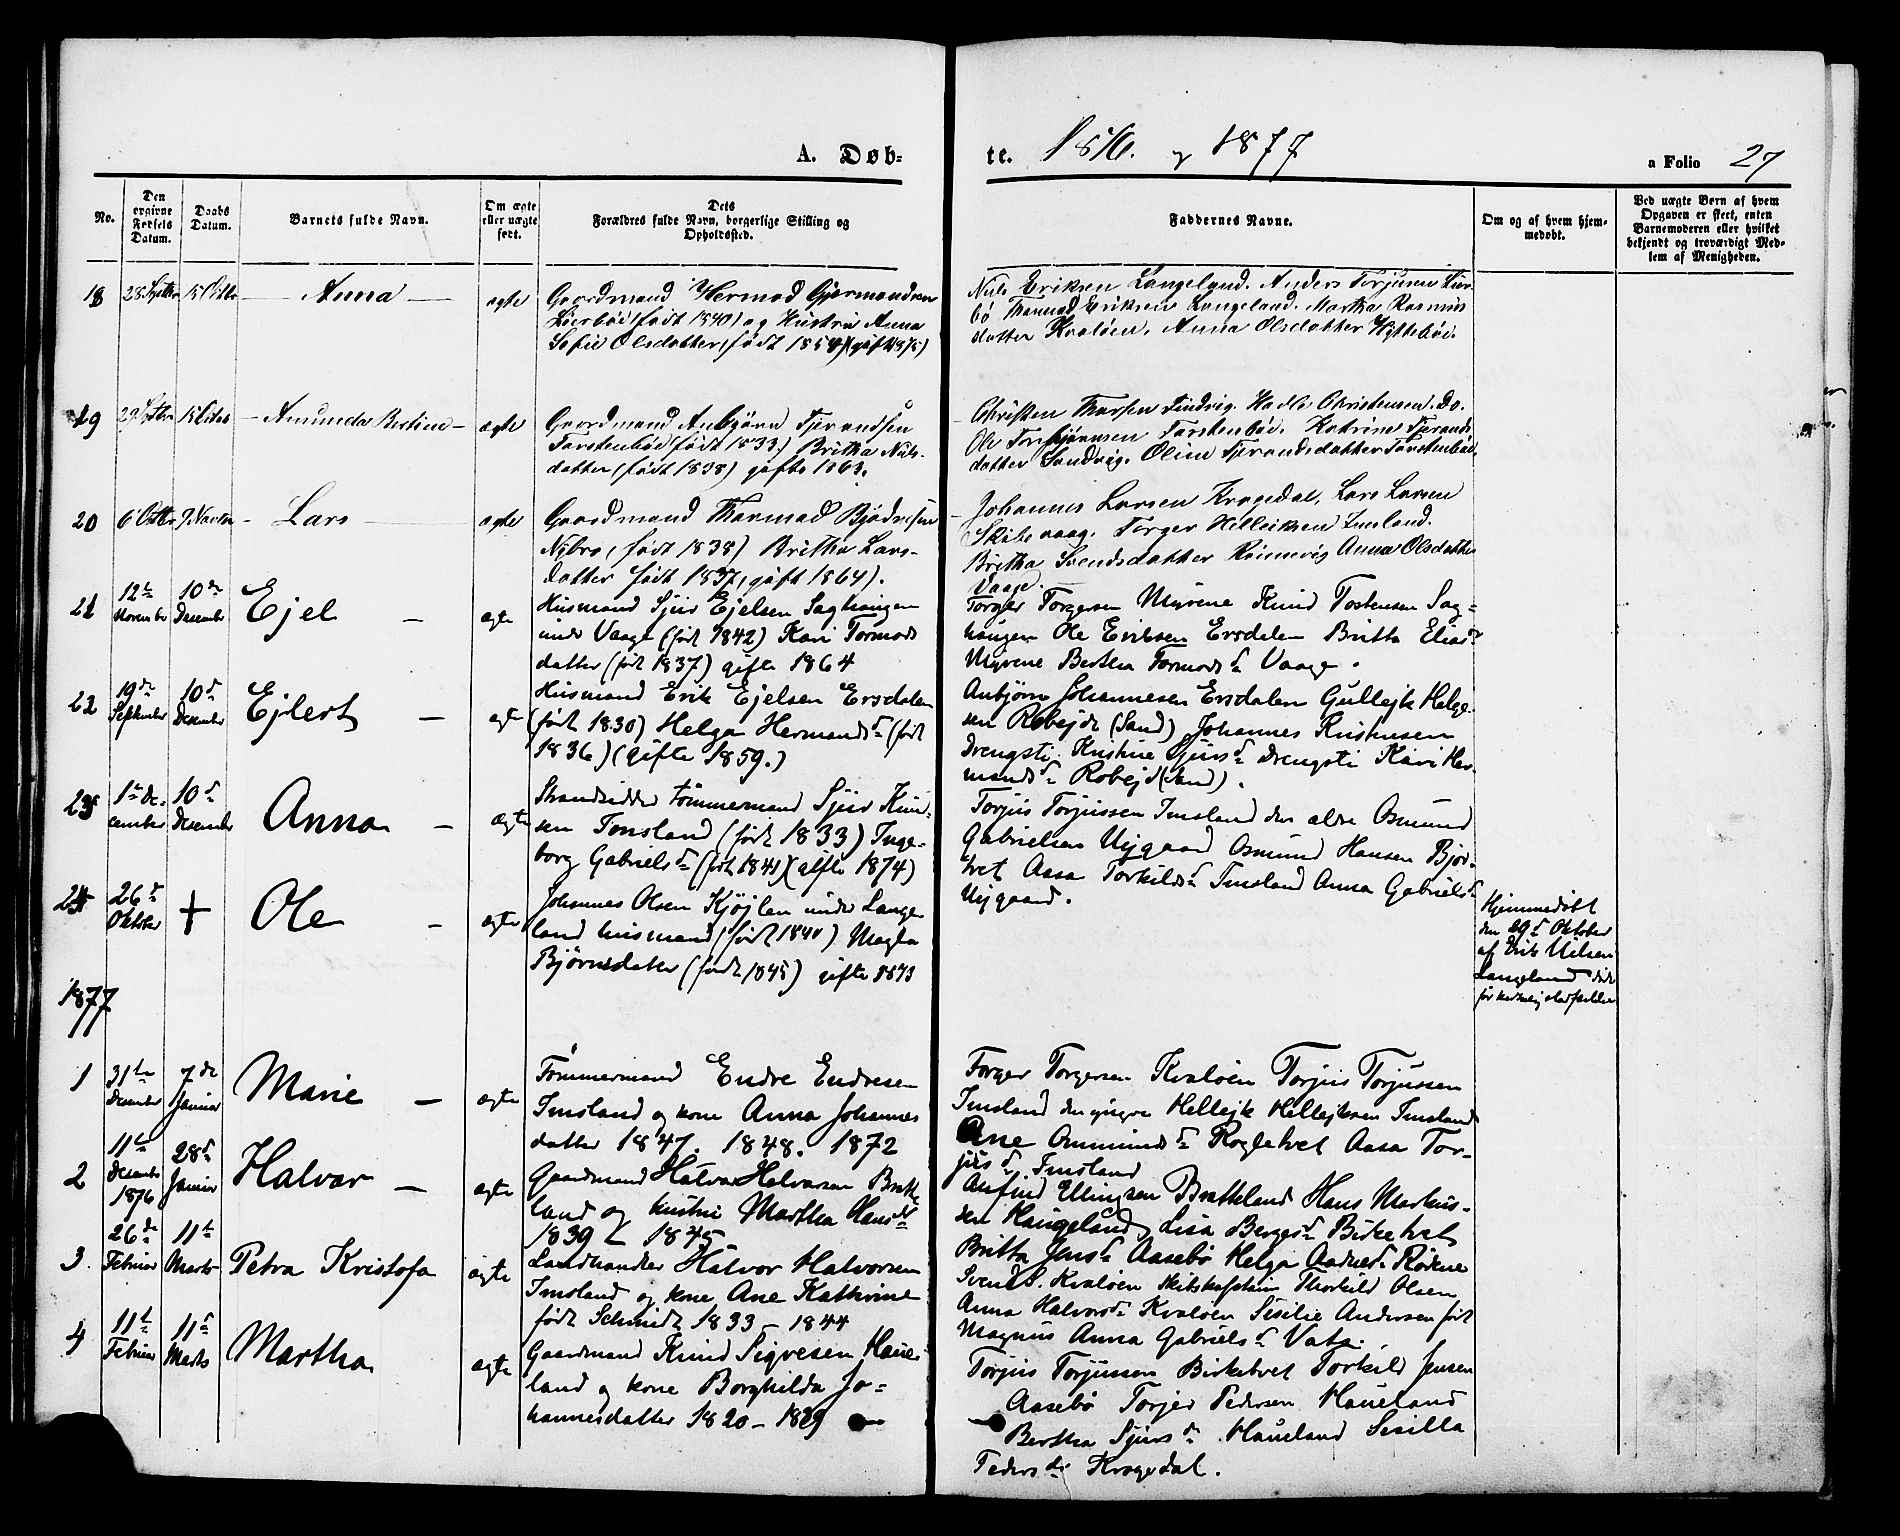 A. Døb-
te. 1876. og 1877
a Folio 27
No.
Den
orgivne
Fødsels
Datum.
Daabs
Datum.
Barnets fulde Navn.
Om ægte
eller uægte
født.
Dets
Forældres fulde Navn, borgerlige Stilling og
Opholdssted.
Faddernes Navne.
Om og af hvem hjem-
medøbt.
Ved uægte Børn af hvem
Opgaven er skeet, enten
Barnemoderen eller hvilket
bekjendt og troværdigt Med-
lem af Menigheden.
18 28 Septbr 15 Octbr Anna ægte
Gaardmand Hermod Gjermundsen
(født 1840) og Hustru Anna
Sofie Olsdatter (født 1854) (gift 1875)
Nils Eriksen Langeland. Anders Torjusen Lier-
bø Thormod Eriksen Langeland. Martha Rasmus
datter Kvaløen. Anna Olsdatter Hyttebøe.
19 29 Septbr 15 Octob Amunda Bertine ægte
Gaardmand Anbjørn Tjerandsen
Torstenbøe (født 1833) Britha Nils-
datter (født 1838) gifte 1863.
Christen Thorsen Tindvig. Hadle Christensen. Do.
Ole Torbjørnsen Torstenbøe. Katrine Tjerands
datter Sandvig. Oline Tjerandsdatter Torstenbøe.
20 6 Octbr 9 Novbr Lars ægte
Gaardmand Thormod
Nybro, (født 1838) Britha Lars-
datter født 1837, gift 1864).
Johannes Larsen Krogedal, Lars Larsen
Skibevaag. Torger Helleiksen Imsland.
Britha Svendsdatter Rönnevig Anna Olsdatter
Vaage.
21 12te November 10de Desember Ejel – ægte
Husmand Sjur Ejelsen Saghaugen
under Vaage (født 1842) Kari Tormods
datter (født 1837) gifte 1864
Torger Torgersen Myrene Knud Tostensen Sag-
haugen Ole Eriksen Ersdalen Britta Eliasd
Myrene Bertha Tormodsd Vaage.
22 19de September 10d Desember Ejlert – ægte
Husmand Erik Ejelsen Ersdalen
(født 1830) Helga Hermandsd (født
1836) (gifte 1859.)
Anbjørn Johannesen Ersdalen Gullejk Helge-
sen Robejde (Sand) Johannes Knutsen
Drengsti Kristine Sjursd Drengsti Kari Her-
mandsd Robejd (Sand).
23 1ste December 10d Desember Anna – ægte
Strandsidder tømmermand Sjur Knud-
sen Imsland (født 1833) Inge-
borg Gabrielsd (født 1841) (gifte 1874)
Torjus Torjussen Imsland den eldre Osmund
Gabrielsen Nygaard Osmund Hansen Bjor-
tvet Aasa Torkildsd Imsland Anna Gabrielsd
Nygaard.
24 26d Oktober + Ole – ægte
Johannes Olsen Kjøjlen under Lange-
land husmand (født 1840) Magla
Bjørnsdatter (født 1845) gifte 1873
Hjemmedøbt
den 29d Oktober
af Erik Nilsen
Langeland
1877
1 31te Desember 7de Januar Marie – ægte
Tømmermand Endre Endresen
Imsland og kone Anna Johannes
datter 1847. 1848. 1872
Torger Torgersen Kvaløen Torjus Torjussen
Imsland den yngre Hellejk Hellejksen Imsland
Ane Osmundsd Rogletvet Aasa Tor-
jusd Imsland
2 11te Desember 1876 28d Januar Halvar – ægte
Gaardmand Halvar Halvarsen Bratte-
land og hustru Martha Hansd
1839 – 1845
Anfind Ellingsen Bratteland Hans Markus-
sen Haugeland Lisa Bergesd Birketvet
Britta Jensd Aasebø Helga Aadned Rødene
3 26de Februar 11te Marts Petra Kristofa ægte
Landhandler Halvor Halvorsen
Imsland og kone Ane Kathrine
født Schmidt 1833 – 1844
Svend S. Kvaløen skibskaptein Thorkild Olsen
Anna Halvorsd Kvaløen Sisilie Andersen født
Magnus Anna Gabrielsd Vats.
4 11te Februar 11d Marts Martha ægte
Gaardmand Knud Sigvesen Haue-
land og kone Borghilda Jo-
hannesdatter 1820 – 1839
Torjus Torjussen Birketvet Torkild Jensen
Aasebø Torjer Pedersen Haueland
Bertha Sjursd Haueland Sisilla
Pedersd Krogedal.